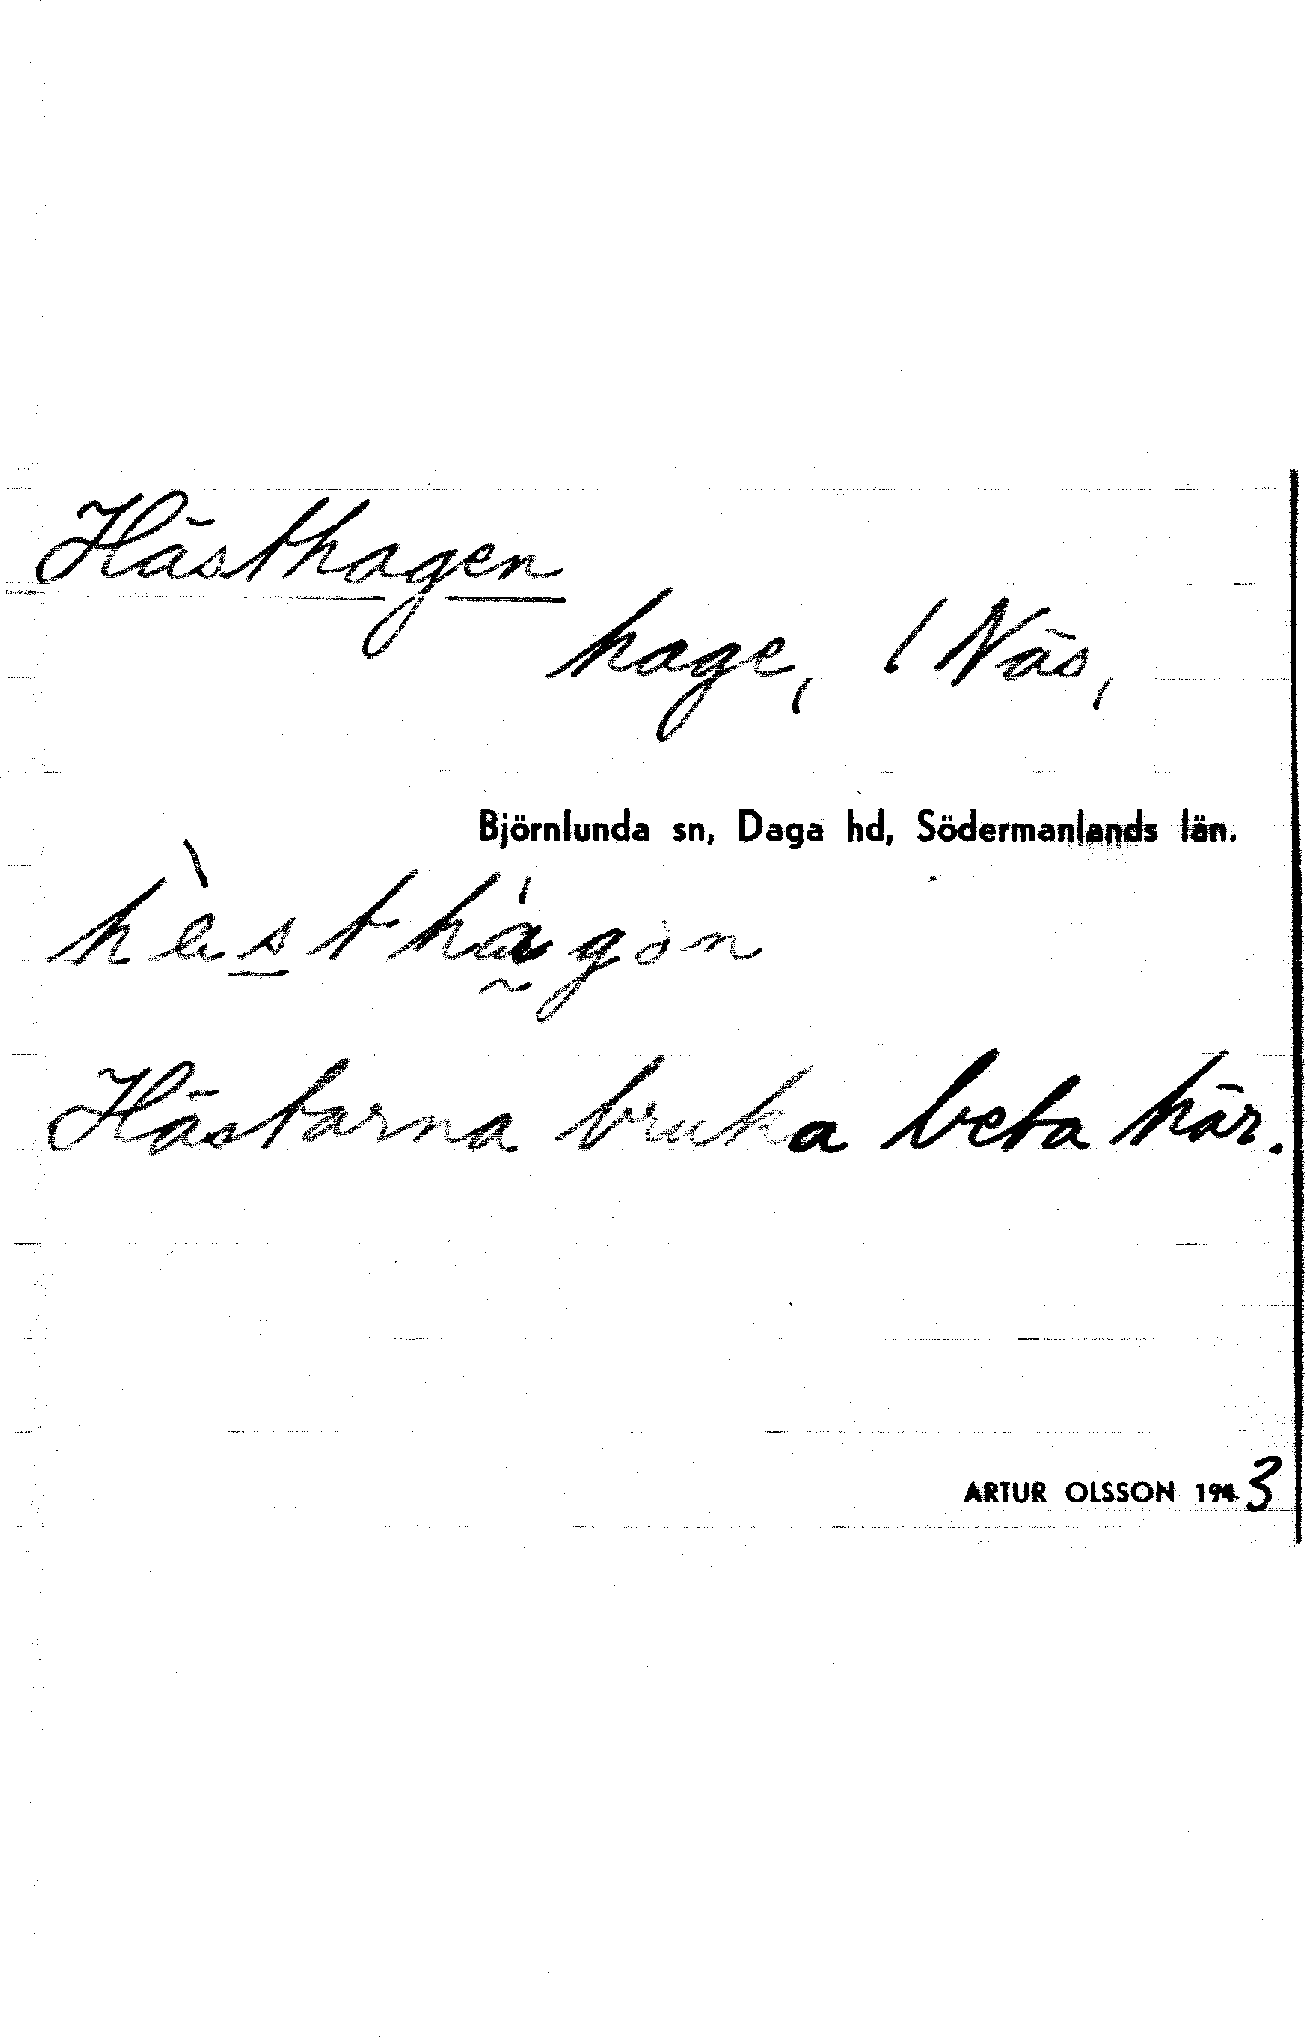 Hästhagen
hage, / Näs,
Björnlunda sn, Daga hd, Södermanlands län.
hàsthágön
Hästarna bruka beta här.
ARTUR OLSSON 1943